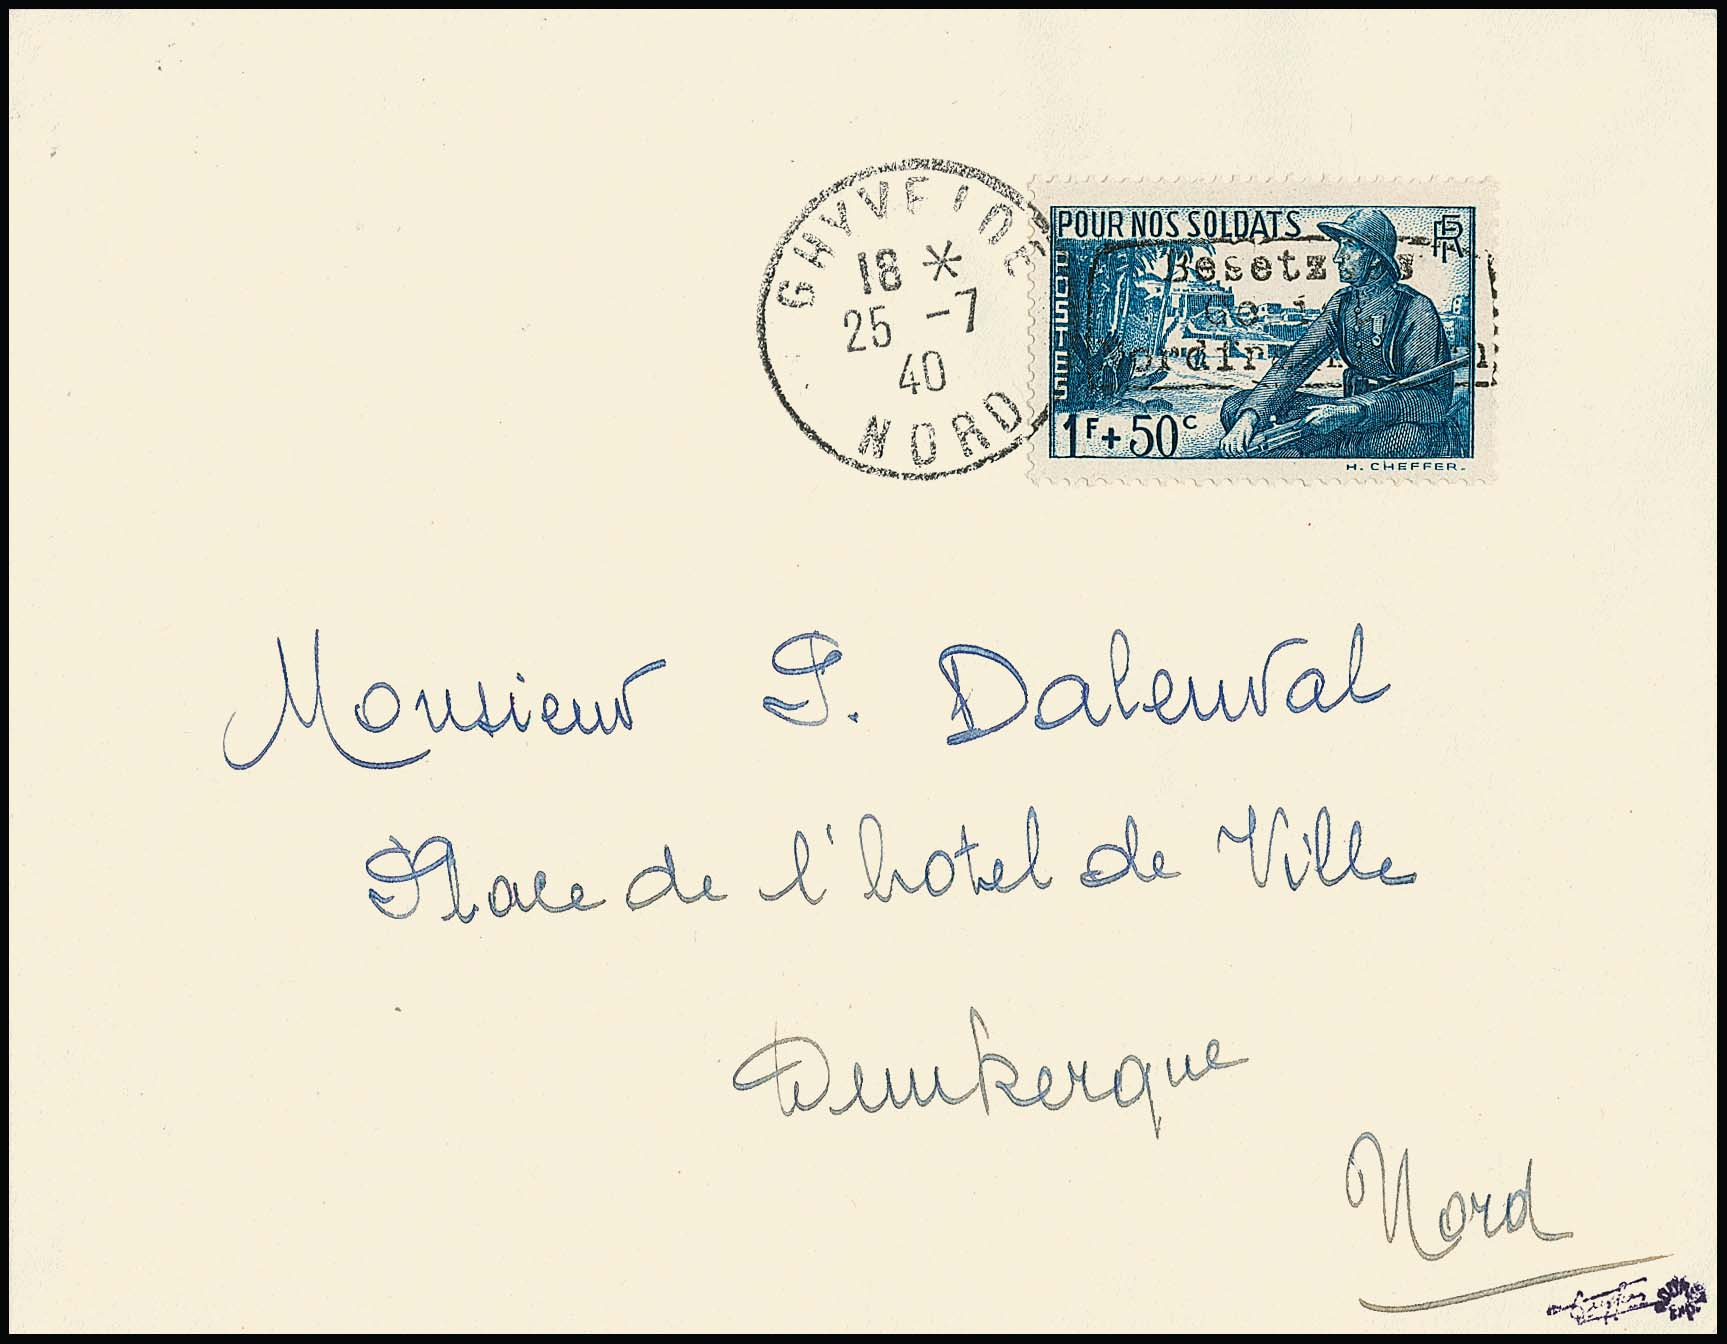 GHYVELDE
18 *
25 -7
40
NORD
POUR NOS SOLDATS
RF
POSTES
Besetztes
1F + 50c
H. CHEFFER.
Monsieur P. Dalenval
Place de l'hotel de Ville
Dunkerque
Nord